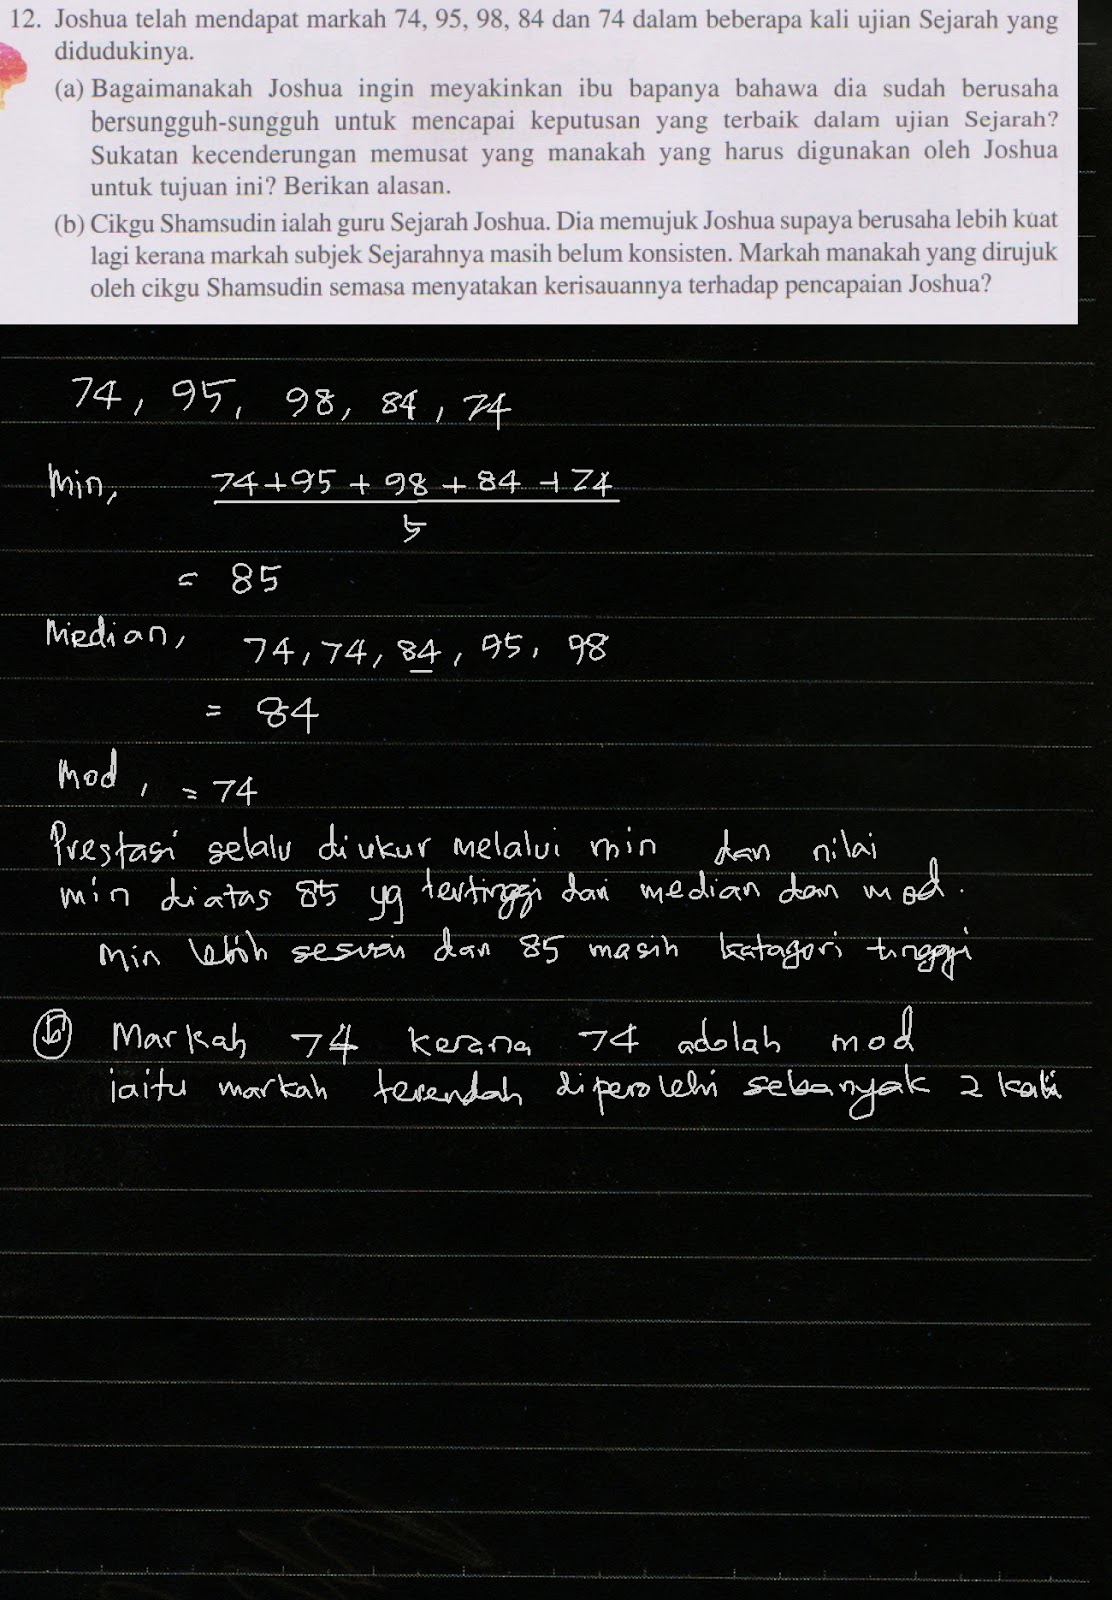 12. Joshua telah mendapat markah 74, 95, 98, 84 dan 74 dalam beberapa kali ujian Sejarah yang
didudukinya.
(a) Bagaimanakah Joshua ingin meyakinkan ibu bapanya bahawa dia sudah berusaha
bersungguh-sungguh untuk mencapai keputusan yang terbaik dalam ujian Sejarah?
Sukatan kecenderungan memusat yang manakah yang harus digunakan oleh Joshua
untuk tujuan ini? Berikan alasan.
(b) Cikgu Shamsudin ialah guru Sejarah Joshua. Dia memujuk Joshua supaya berusaha lebih kuat
lagi kerana markah subjek Sejarahnya masih belum konsisten. Markah manakah yang dirujuk
oleh cikgu Shamsudin semasa menyatakan kerisauannya terhadap pencapaian Joshua?
74, 95, 98, 84, 74
Min, 74+95+98+84+74
5
= 85
Median, 74, 74, 84, 95, 98
= 84
Mod, = 74
Prestasi selalu diukur melalui min dan nilai
min diatas 85 yg tertinggi dari median dan mod.
Min lebih sesuai dan 85 masih katagori tinggi
(b) Markah 74 kerana 74 adalah mod
iaitu markah terendah diperolehi sebanyak 2 kali